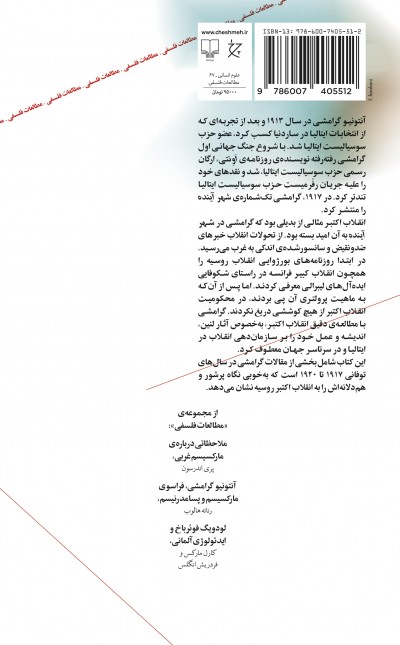 مطالعات فلسفی . مطالعات فلسفی . مطالعات فلسفی . مطالعات فلسفی . مطالعات فلسفی
www.cheshmeh.ir
علوم انسانی ـ ۶۷
مطالعات فلسفی
۹۵۰۰۰ تومان
ISBN-13: 978-600-7405-51-2
9 786007 405512
آنتونیو گرامشی در سال ۱۹۱۳ و بعد از تجربه‌ای که
از انتخابات ایتالیا در ساردنیا کسب کرد، عضو حزب
سوسیالیست ایتالیا شد. با شروع جنگ جهانی اول
گرامشی رفته‌رفته نویسنده‌ی روزنامه‌ی آونتی، ارگان
رسمی حزب سوسیالیست ایتالیا، شد و نقدهای خود
را علیه جریان رفرمیست حزب سوسیالیست ایتالیا
تندتر کرد. در ۱۹۱۷، گرامشی تک‌شماره‌ی شهر آینده
را منتشر کرد.
انقلاب اکتبر مثالی از بدیلی بود که گرامشی در شهر
آینده به آن امید بسته بود. از تحولات انقلاب خبرهای
ضدونقیض و سانسورشده‌ی اندکی به غرب می‌رسید.
در ابتدا روزنامه‌های بورژوایی انقلاب روسیه را
همچون انقلاب کبیر فرانسه در راستای شکوفایی
ایده‌آل‌های لیبرالی معرفی کردند. اما پس از آن‌که
به ماهیت پرولتری آن پی بردند، در محکومیت
انقلاب اکتبر از هیچ کوششی دریغ نکردند. گرامشی
با مطالعه‌ی دقیق انقلاب اکتبر، به‌خصوص آثار لنین،
اندیشه و عمل خود را بر سازمان‌دهی انقلاب در
ایتالیا و در سرتاسر جهان معطوف کرد.
این کتاب شامل بخشی از مقالات گرامشی در سال‌های
توفانی ۱۹۱۷ تا ۱۹۲۰ است که به‌خوبی نگاه پرشور و
هم‌دلانه‌اش را به انقلاب اکتبر روسیه نشان می‌دهد.
از مجموعه‌ی
«مطالعات فلسفی»:
ملاحظاتی درباره‌ی
مارکسیسم غربی،
پری اندرسون
آنتونیو گرامشی، فراسوی
مارکسیسم و پسامدرنیسم،
رناته هالوب
لودویگ فوئرباخ و
ایدئولوژی آلمانی،
کارل مارکس و
فردریش انگلس